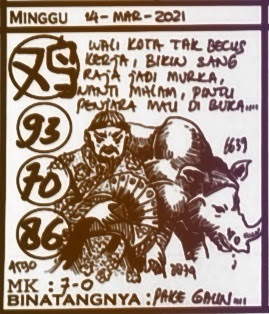 MINGGU 14-MAR-2021
鸡
WALI KOTA TAK BECUS
KERJA, BIKIN SANG
RAJA JADI MURKA,
NANTI MALAM, PINTU
PENJARA MAU DI BUKA....
93
70
86
1639
MK : 7-0
BINATANGNYA : PAKE GAUN....